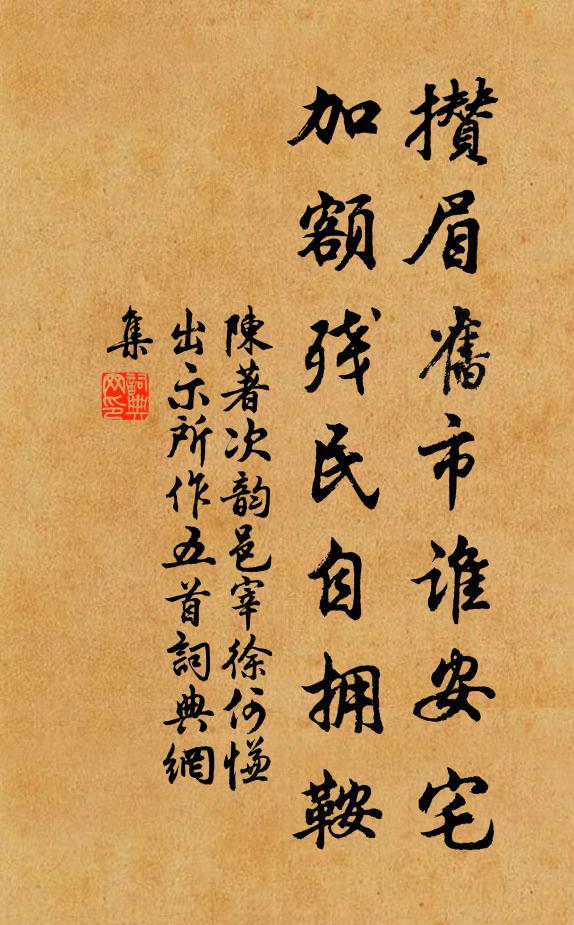 攅眉舊市誰安宅
加額残民自拥鞍
陳著次韵邑宰徐何慊
出示所作五首詞典網
集
詞典網印